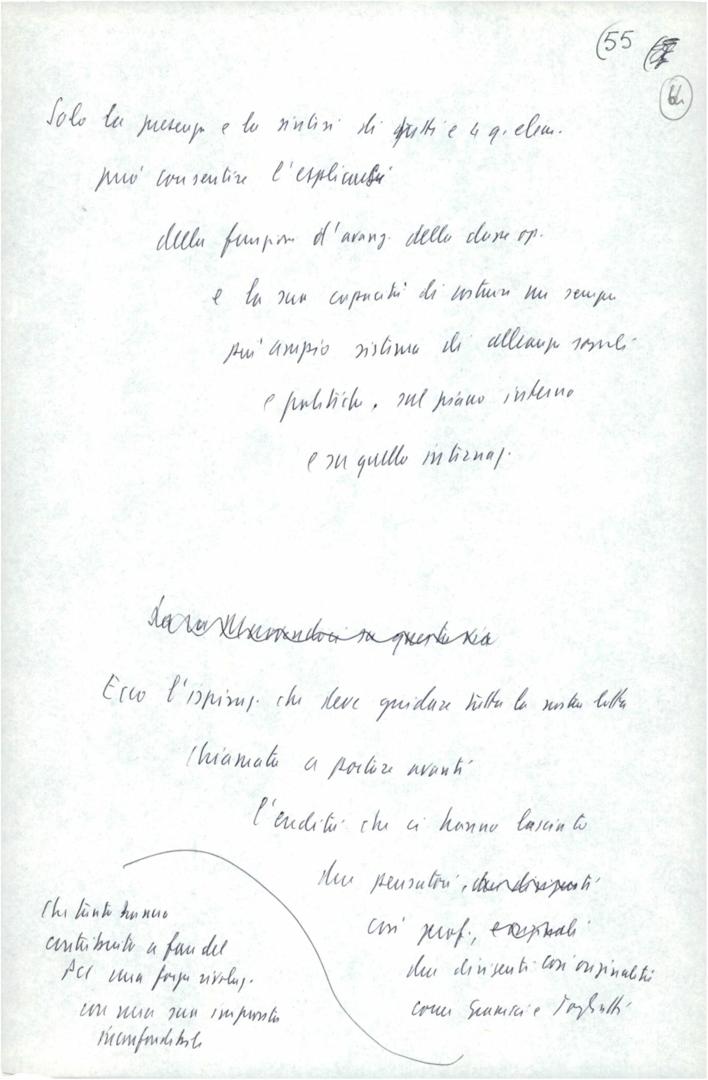 (55
64
Solo la presenza e la sintesi di questi e 4 q. elem.
può consentire l'esplicarsi
della funzione d'avang. della classe op.
e la sua capacità di costruire un sempre
più ampio sistema di alleanze sociali
e politiche, sul piano interno
e su quello internaz.
su questa via
Ecco l'ispiraz. che deve guidare tutta la nostra lotta
chiamata a portare avanti
l'eredità che ci hanno lasciato
due pensatori, due dirigenti
così prof., e originali
due dirigenti così originali
come Gramsci e Togliatti
che tanto hanno
contribuito a fare del
PCI una forza rivoluz.
con una sua impronta
inconfondibile